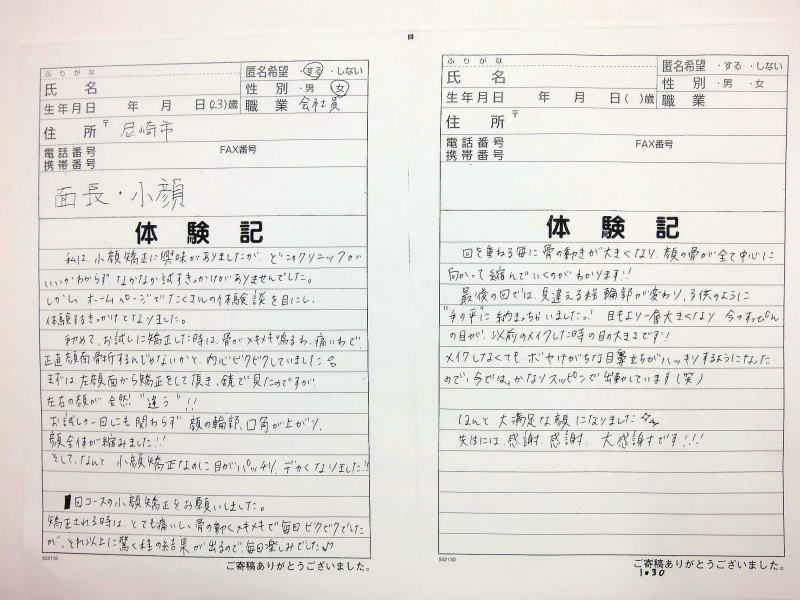 ふりがな
匿名希望 ・する ・しない
氏 名
性 別 ・男 ・女
生年月日 年 月 日(23)歳
職 業 会社員
住 所 〒 尼崎市
電話番号
FAX番号
携帯番号
面長・小顔
体 験 記
私は、小顔矯正に興味がありましたが、どこのクリニックが
いいかわからず、なかなか試すきっかけがありませんでした。
しかし、ホームページでたくさんの体験談を目にし、
体験するきっかけとなりました。
初めて、お試しに矯正した時は、骨がメキメキ鳴るわ、痛いわで、
正直顔面骨折するんじゃないかと、内心ビクビクしていました。
まずは、左顔面から矯正をして頂き、鏡で見たのですが、
左右の顔が全然"違う"!!
お試し一回にも関わらず 顔の輪郭、口角が上がり、
顔全体が縮みました!!
そして、なんと 小顔矯正なのに目がパッチリ、デカくなりました!!
回コースの小顔矯正をお願いしました。
矯正される時は、とても痛いし、骨の動くメキメキで毎日ビクビクでした
が、それ以上に驚く程の結果が出るので、毎日楽しみでした♪
502130
ご寄稿ありがとうございました。
ふりがな
匿名希望 ・する ・しない
氏 名
性 別 ・男 ・女
生年月日 年 月 日( )歳
職 業
住 所 〒
電話番号
FAX番号
携帯番号
体 験 記
回を重ねる毎に骨の動きが大きくなり、顔の骨が全て中心に
向かって縮んでいくのがわかります!!
最後の回では、見違える程 輪郭が変わり、子供のように
"手の平"に納まっちゃいましたっ! 目もより一層大きくなり 今のすっぴん
の目が、以前のメイクした時の目の大きさです!
メイクしなくても、ボヤけがちな目鼻立ちがハッキリするようになった
ので、今では、かなりスッピンで出勤しています(笑)
ほんと 大満足な顔になりました
先生には、感謝、感謝、大感謝です!!!
502130
ご寄稿ありがとうございました。
1.30